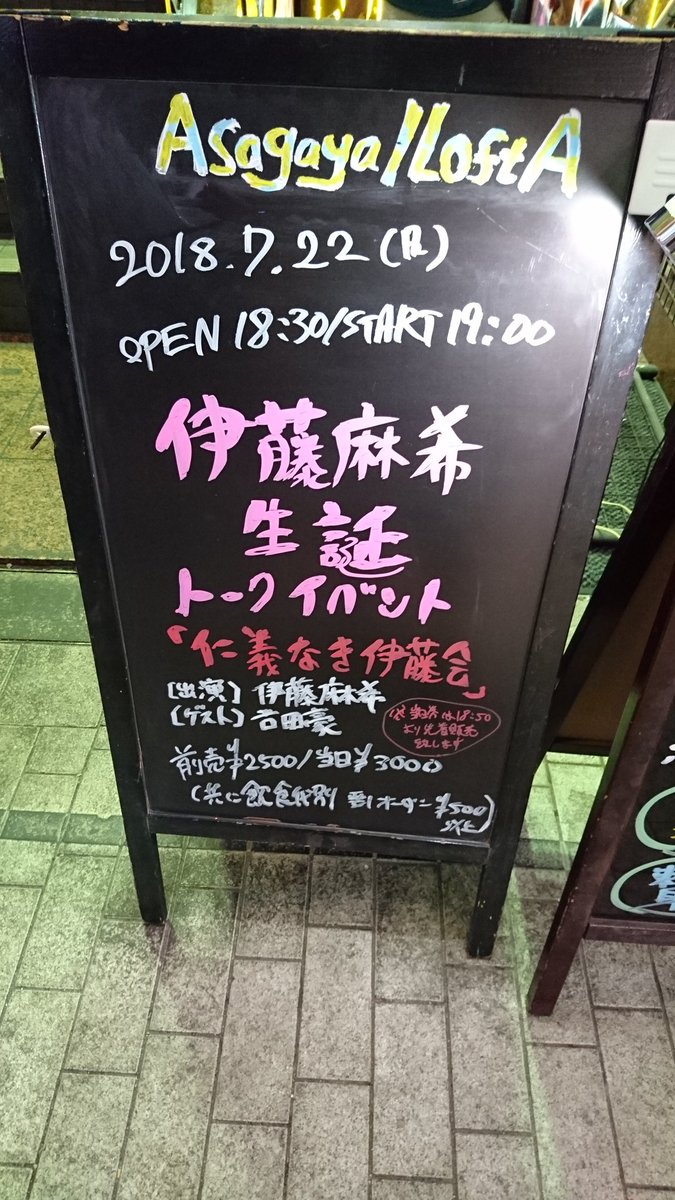 Asagaya/LoftA
2018.7.22(日)
OPEN 18:30/START 19:00
伊藤麻希
生誕
トークイベント
「仁義なき伊藤会」
[出演] 伊藤麻希
[ゲスト] 吉田豪
※当日券は18:50
より先着販売
致します
前売¥2500/当日¥3000
(共に飲食代別 要1オーダー¥500
以上)